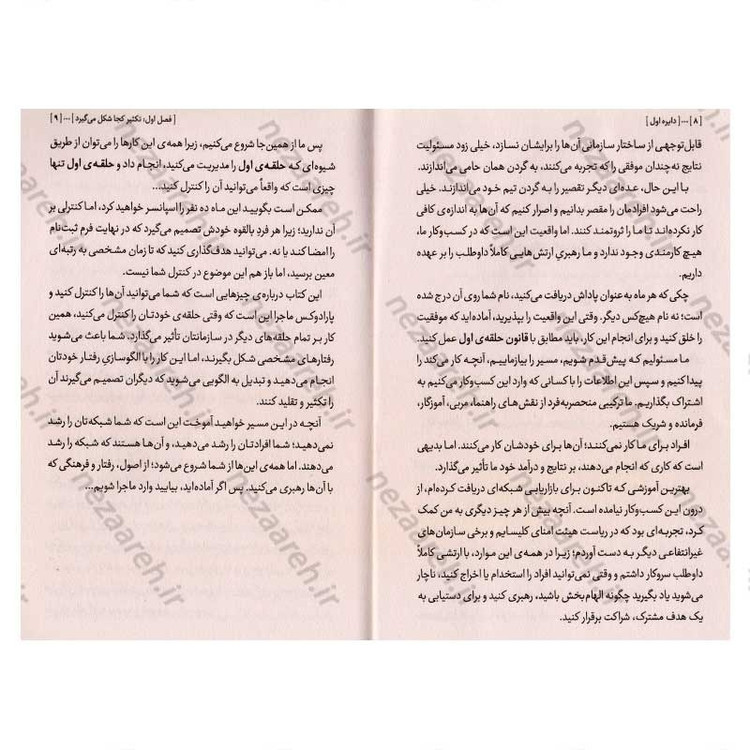 [ ۸ ] ... [ دایره اول ]
قابل‌توجهی از ساختار سازمانی آن‌ها را برایشان نسازد، خیلی زود مسئولیت
نتایج نه‌چندان موفقی را که تجربه می‌کنند، به گردن همان حامی می‌اندازند.
با این حال، عده‌ای دیگر تقصیر را به گردن تیم خود می‌اندازند. خیلی
راحت می‌شود افرادمان را مقصر بدانیم و اصرار کنیم که آن‌ها به اندازه‌ی کافی
کار نکرده‌اند تا ما را ثروتمند کنند. اما واقعیت این است که در کسب‌وکار ما،
هیچ کارمندی وجود ندارد و ما رهبریِ ارتش‌هایی کاملاً داوطلب را بر عهده
داریم.
چکی که هر ماه به عنوان پاداش دریافت می‌کنید، نام شما روی آن درج شده
است؛ نه نام هیچ‌کس دیگر. وقتی این واقعیت را بپذیرید، آماده‌اید که موفقیت
را خلق کنید و برای انجام این کار، باید مطابق با قانون حلقه‌ی اول عمل کنید.
ما مسئولیم که پیش‌قدم شویم، مسیر را بیازماییم، آنچه کار می‌کند را
پیدا کنیم و سپس این اطلاعات را با کسانی که وارد این کسب‌وکار می‌کنیم به
اشتراک بگذاریم. ما ترکیبی منحصربه‌فرد از نقش‌های راهنما، مربی، آموزگار،
فرمانده و شریک هستیم.
افراد برای ما کار نمی‌کنند؛ آن‌ها برای خودشان کار می‌کنند. اما بدیهی
است که کاری که انجام می‌دهند، بر نتایج و درآمد خود ما تأثیر می‌گذارد.
بهترین آموزشی که تاکنون برای بازاریابی شبکه‌ای دریافت کرده‌ام، از
درون این کسب‌وکار نیامده است. آنچه بیش از هر چیز دیگری به من کمک
کرد، تجربه‌ای بود که در ریاست هیئت امنای کلیسایم و برخی سازمان‌های
غیرانتفاعی دیگر به دست آوردم؛ زیرا در همه‌ی این موارد، با ارتشی کاملاً
داوطلب سروکار داشتم و وقتی نمی‌توانید افراد را استخدام یا اخراج کنید، ناچار
می‌شوید یاد بگیرید چگونه الهام‌بخش باشید، رهبری کنید و برای دستیابی به
یک هدف مشترک، شراکت برقرار کنید.
[ فصل اول: تکثیر کجا شکل می‌گیرد ] ... [ ۹ ]
پس ما از همین‌جا شروع می‌کنیم، زیرا همه‌ی این کارها را می‌توان از طریق
شیوه‌ای که حلقه‌ی اول را مدیریت می‌کنید، انجام داد و حلقه‌ی اول تنها
چیزی است که واقعاً می‌توانید آن را کنترل کنید...
ممکن است بگویید این ماه ده نفر را اسپانسر خواهید کرد، اما کنترلی بر
آن ندارید؛ زیرا هر فردِ بالقوه خودش تصمیم می‌گیرد که در نهایت فرم ثبت‌نام
را امضا کند یا نه. می‌توانید هدف‌گذاری کنید که تا زمان مشخصی به رتبه‌ای
معین برسید، اما باز هم این موضوع در کنترل شما نیست.
این کتاب درباره‌ی چیزهایی است که شما می‌توانید آن‌ها را کنترل کنید و
پارادوکس ماجرا این است که وقتی حلقه‌ی خودتان را کنترل می‌کنید، همین
کار بر تمام حلقه‌های دیگر در سازمانتان تأثیر می‌گذارد. شما باعث می‌شوید
رفتارهای مشخصی شکل بگیرند، اما این کار را با الگوسازیِ رفتار خودتان
انجام می‌دهید و تبدیل به الگویی می‌شوید که دیگران تصمیم می‌گیرند آن
را تکثیر و تقلید کنند.
آنچه در این مسیر خواهید آموخت این است که شما شبکه‌تان را رشد
نمی‌دهید؛ شما افرادتان را رشد می‌دهید، و آن‌ها هستند که شبکه را رشد
می‌دهند. اما همه‌ی این‌ها از شما شروع می‌شود؛ از اصول، رفتار و فرهنگی که
با آن‌ها رهبری می‌کنید. پس اگر آماده‌اید، بیایید وارد ماجرا شویم...
nezaareh.ir